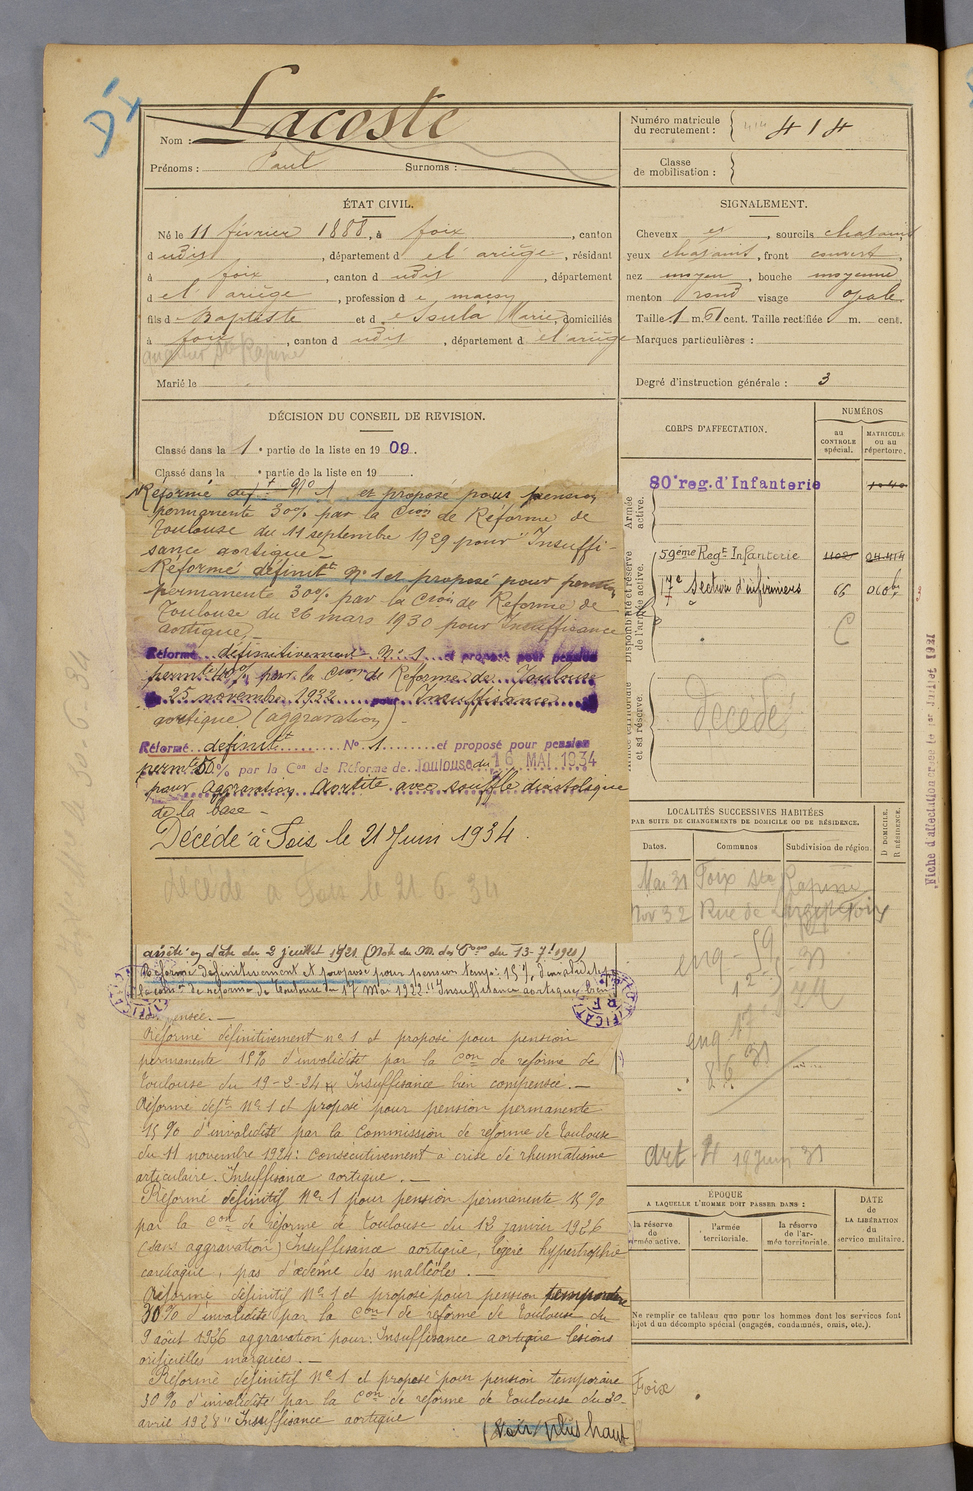 Lacoste
Nom :
Prénoms : Paul Surnoms :
Numéro matricule
du recrutement : 414
Classe
de mobilisation :
ÉTAT CIVIL.
Né le 11 février 1888, à foix, canton
d udit, département d e l'ariège, résidant
à foix, canton d udit, département
d e l'ariège, profession d e maçon
fils d e Baptiste et d e Marie, domiciliés
à foix, canton d udit, département d e l'ariège
quartier
Marié le
SIGNALEMENT.
Cheveux et, sourcils chatains
yeux chatains, front couvert,
nez moyen, bouche moyenne
menton rond visage ovale
Taille 1 m. 61 cent. Taille rectifiée m. cent.
Marques particulières :
Degré d'instruction générale : 3
DÉCISION DU CONSEIL DE REVISION.
Classé dans la 1e partie de la liste en 1909.
Classé dans la e partie de la liste en 19
Réformé déft No 1 et proposé pour pension
permanente 30% par la Con de Réforme de
Toulouse du 11 septembre 1929 pour "Insuffi-
sance aortique -
Réformé définitt No 1 et proposé pour pension
permanente 30% par la Con de Réforme de
Toulouse du 26 mars 1930 pour Insuffisance
aortique -
Réformé définitivement No 1 et proposé pour pension
par la Con de Réforme de Toulouse
25 novembre 1932 pour Insuffisance
aortique (aggravation) -
Réformé définitt No 1 et proposé pour pension
permte 50% par la Con de Réforme de Toulouse du 16 MAI 1934
pour aggravation Aortite avec souffle diastolique
de la base -
Décédé à Foix le 21 Juin 1934.
décédé a Foix le 21-6-34
arrêté en date du 2 juillet 1921 (Not. du M. des Pons du 13-7-1921)
Réformé définitivement et proposé pour pension temp: 15% d'invalidité
de réforme de Toulouse du 17 Mai 1922 "Insuffisance aortique bien
compensée. -
Réformé définitivement no 1 et proposé pour pension
permanente 15% d'invalidité par la con de réforme de
Toulouse du 19-2-24 Insuffisance bien compensée. -
Réformé déft no 1 et proposé pour pension permanente
15% d'invalidité par la Commission de réforme de Toulouse
du 11 novembre 1924: consécutivement à crise de rhumatisme
articulaire. Insuffisance aortique. -
Réformé définitif No 1 pour pension permanente 15%
par la Con de réforme de Toulouse du 12 janvier 1926
(sans aggravation) Insuffisance aortique, légère hypertrophie
cardiaque, pas d'œdème des malléoles. -
Réformé définitif No 1 et proposé pour pension temporaire
30% d'invalidité par la Con de réforme de Toulouse du
9 août 1926 aggravation pour: Insuffisance aortique lésions
orificielles marquées. -
Réformé définitif No 1 et proposé pour pension temporaire
30% d'invalidité par la Con de réforme de Toulouse du 30
avril 1928 "Insuffisance aortique
(voir plus haut)
CORPS D'AFFECTATION.
NUMÉROS
au
CONTROLE
spécial.
MATRICULE
ou au
répertoire.
Armée
active.
80e reg. d'Infanterie
Disponibilité et réserve
de l'armée active.
59ème Regt Infanterie
17e Section d'infirmiers 66
C
et sa réserve.
décédé
LOCALITÉS SUCCESSIVES HABITÉES
PAR SUITE DE CHANGEMENTS DE DOMICILE OU DE RÉSIDENCE.
Dates. Communes Subdivision de région.
D DOMICILE.
R RÉSIDENCE.
Mai 31 Foix
Nov 32 Rue de Foix
Art. 4 19 Juin 31
ÉPOQUE
A LAQUELLE L'HOMME DOIT PASSER DANS :
la réserve
de
l'armée active.
l'armée
territoriale.
la réserve
de l'ar-
mée territoriale.
DATE
de
LA LIBÉRATION
du
service militaire.
Ne remplir ce tableau que pour les hommes dont les services font
objet d'un décompte spécial (engagés, condamnés, omis, etc.).
Foix
Fiche d'affectation créée le 1er Juillet 1931